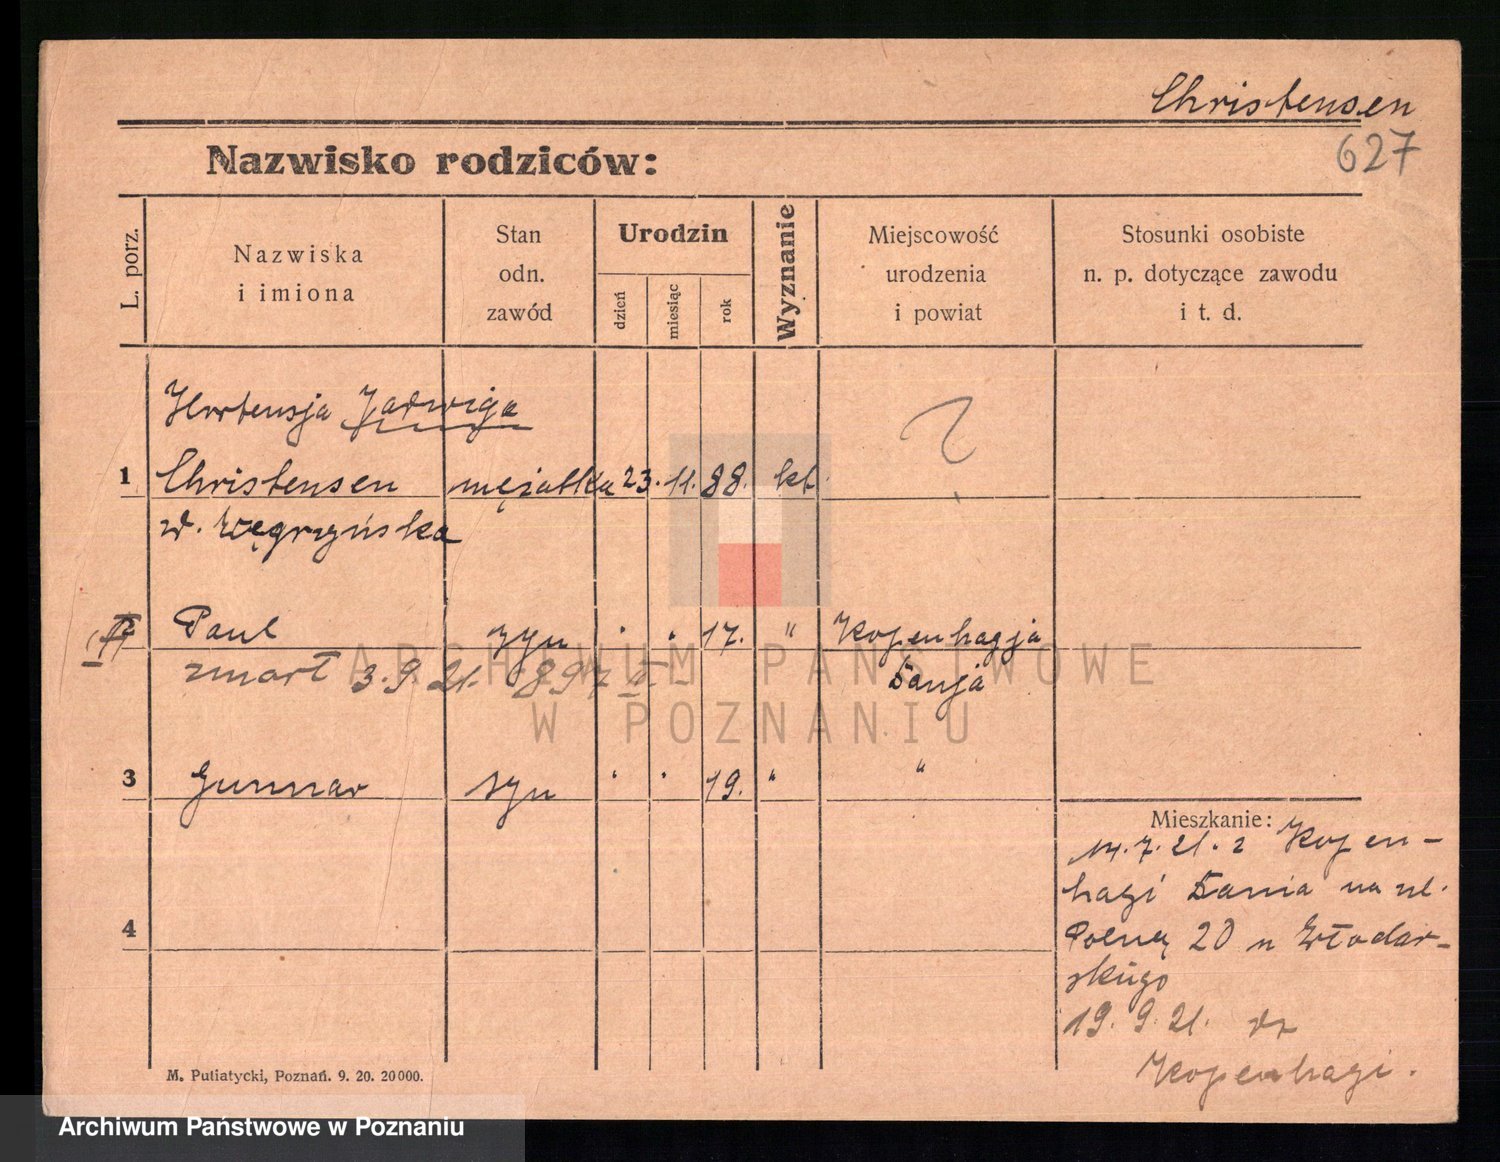 Christensen
627
Nazwisko rodziców:
L. porz.
Nazwiska
i imiona
Stan
odn.
zawód
Urodzin
dzień
miesiąc
rok
Wyznanie
Miejscowość
urodzenia
i powiat
Stosunki osobiste
n. p. dotyczące zawodu
i t. d.
Hortensja Jadwiga
1 Christensen mężatka 23. 11. 88. kt.
Węgrzyńska
Paul syn " " 17. " Kopenhagja
zmarł 3.9.21. 897 Danja
3 Gunnar syn " " 19. " "
4
Mieszkanie:
14.7.21. z Kopen-
hagi Dania na ul.
Polną 20 u Włodar-
skiego
19.9.21. do
Kopenhagi.
M. Putiatycki, Poznań. 9. 20. 20000.
ARCHIWUM PAŃSTWOWE
W POZNANIU
Archiwum Państwowe w Poznaniu